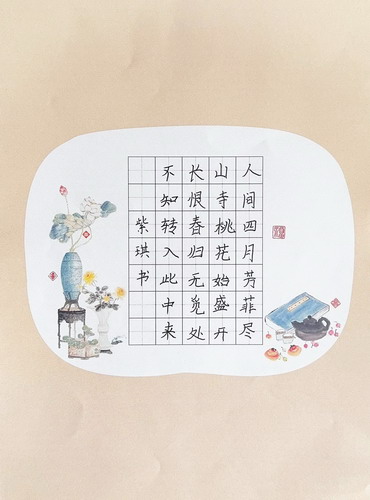 人间四月芳菲尽
山寺桃花始盛开
长恨春归无觅处
不知转入此中来
紫琪书